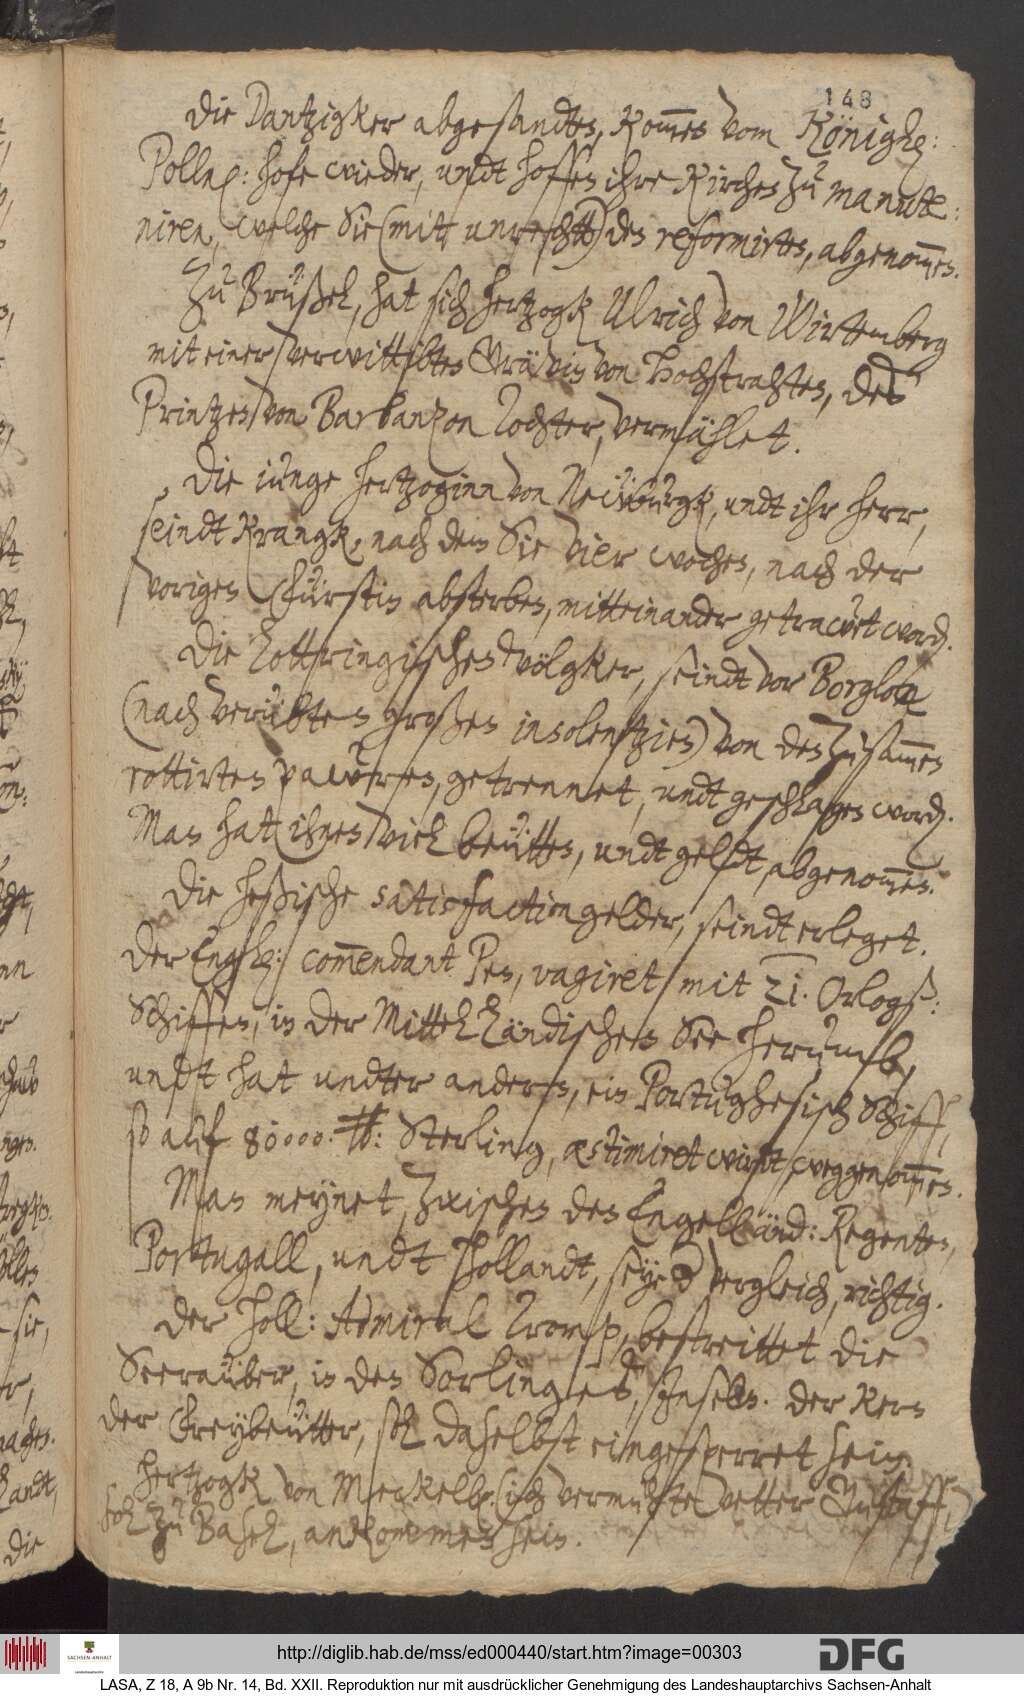 148
Die Dantzigker abgesandten, kom̄en vom Königl:
Polln: hofe wieder, undt hoffen ihre kirchen zu manute:
niren, welche Sie (mitt unrechtt) den reformirten, abgenom̄en.
Zu Brüßel, hat sich hertzogk Ulrich von Wirtemberg
mit einer verwittibten Grävin von Hochstrahten, des
Printzen von Barbanzon Tochter, vermählet.
Die iunge hertzoginn von Neüburgk, undt ihr herr,
seindt krangk, nach dem Sie vier wochen, nach der
vorigen Fürstin absterben, mitteinander getrawet word.
Die Lottringischen völgker, seindt vor Borgloen
(nach verübten großen insolentzien) von den zusam̄en
rottirten pawren, getrennet, undt geschlagen word.
Man hat ihnen viel beütten, undt geldt, abgenom̄en.
Die heßische satisfactiongelder, seindt erleget.
Der Engl: com̄endant Pen, vagiret mit 21. Orlogß:
Schiffen, in der Mittelländischen See herumb,
undt hat undter andern, ein Portughesisch Schiff,
so auf 80000. ℔: Sterling, æstimiret wirdt, weggenom̄en.
Man meynet, zwischen den Engelländ: Regenten,
Portugall, undt Hollandt, seye der vergleich, richtig.
Der Holl: Admiral Tromp, bestreittet die
Seerauber, in den Sorlinges Inseln. Der kern
der Freybeütter, sol daselbst eingesperret sein.
Hertzogk von Meckelb. sich vermuhte vetter Gustaff,
sol zu Basel, ankommen sein.
http://diglib.hab.de/mss/ed000440/start.htm?image=00303
SACHSEN-ANHALT
DFG
LASA, Z 18, A 9b Nr. 14, Bd. XXII. Reproduktion nur mit ausdrücklicher Genehmigung des Landeshauptarchivs Sachsen-Anhalt